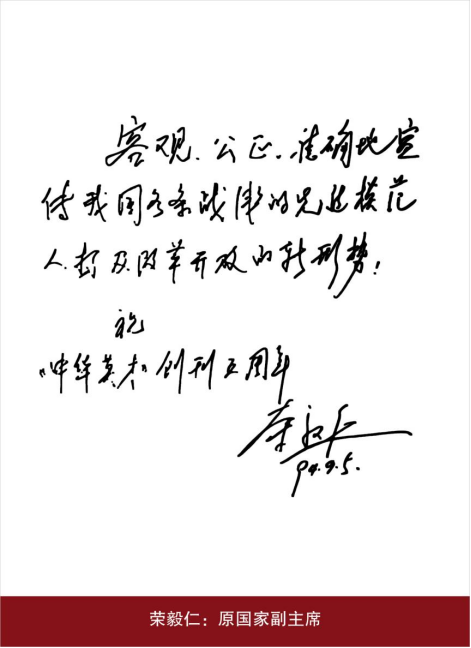 客观、公正、准确地宣
传我国各条战线的先进模范
人物及改革开放的新形势！
祝
《中华英才》创刊五周年
荣毅仁
94.9.5.
荣毅仁：原国家副主席